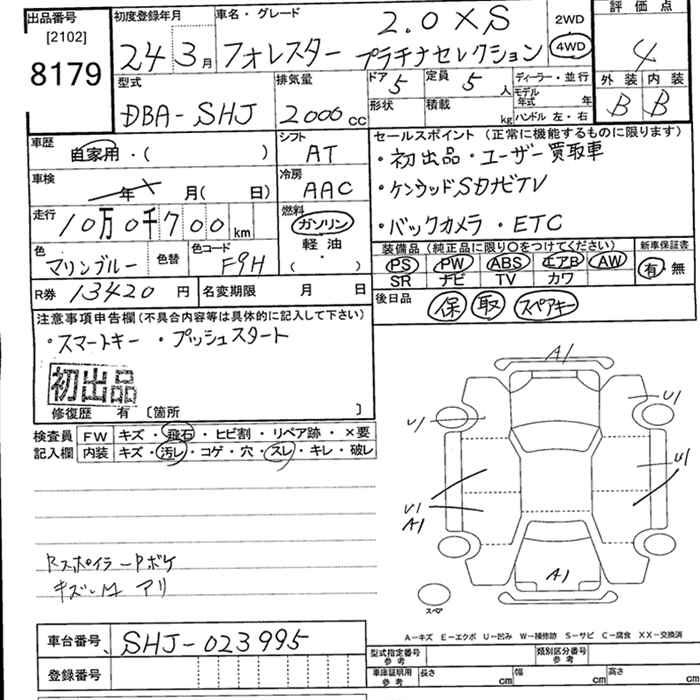 出品番号 [2102] 8179
初度登録年月 24 3月
車名・グレード フォレスター 2.0XS プラチナセレクション
2WD 4WD
評価点 4
型式 DBA-SHJ
排気量 2000cc
ドア 5
形状
定員 5人
積載 kg
ディーラー・並行
モデル年式 年
ハンドル 左・右
外装 B
内装 B
車歴 自家用・( )
シフト AT
車検 年 月( 日)
冷房 AAC
走行 10万0千700km
燃料 ガソリン
軽油
( ・ )
色 マリンブルー 色替
色コード F9H
R券 13420円
名変期限 月 日
セールスポイント (正常に機能するものに限ります)
・初出品・ユーザー買取車
・ケンウッドSDナビTV
・バックカメラ・ETC
装備品 (純正品に限り○をつけてください)
PS PW ABS エアB AW
SR ナビ TV カワ
新車保証書
有・無
後日品 保 取 スペアキー
注意事項申告欄(不具合内容等は具体的に記入して下さい)
・スマートキー・プッシュスタート
初出品
修復歴 有 〔箇所 〕
検査員 FW キズ・飛石・ヒビ割・リペア跡・×要
記入欄 内装 キズ・汚レ・コゲ・穴・スレ・キレ・破レ
A1
U1
U1
U1
U1
A1
A1
スペア
Rスポイラー Pボケ
キズ・M アリ
A-キズ E-エクボ U-凹み W-補修跡 S-サビ C-腐食 XX-交換済
車台番号 SHJ-023995
登録番号
型式指定番号 参考
類別区分番号 参考
車庫証明用 参考 長さ cm 幅 cm 高さ cm